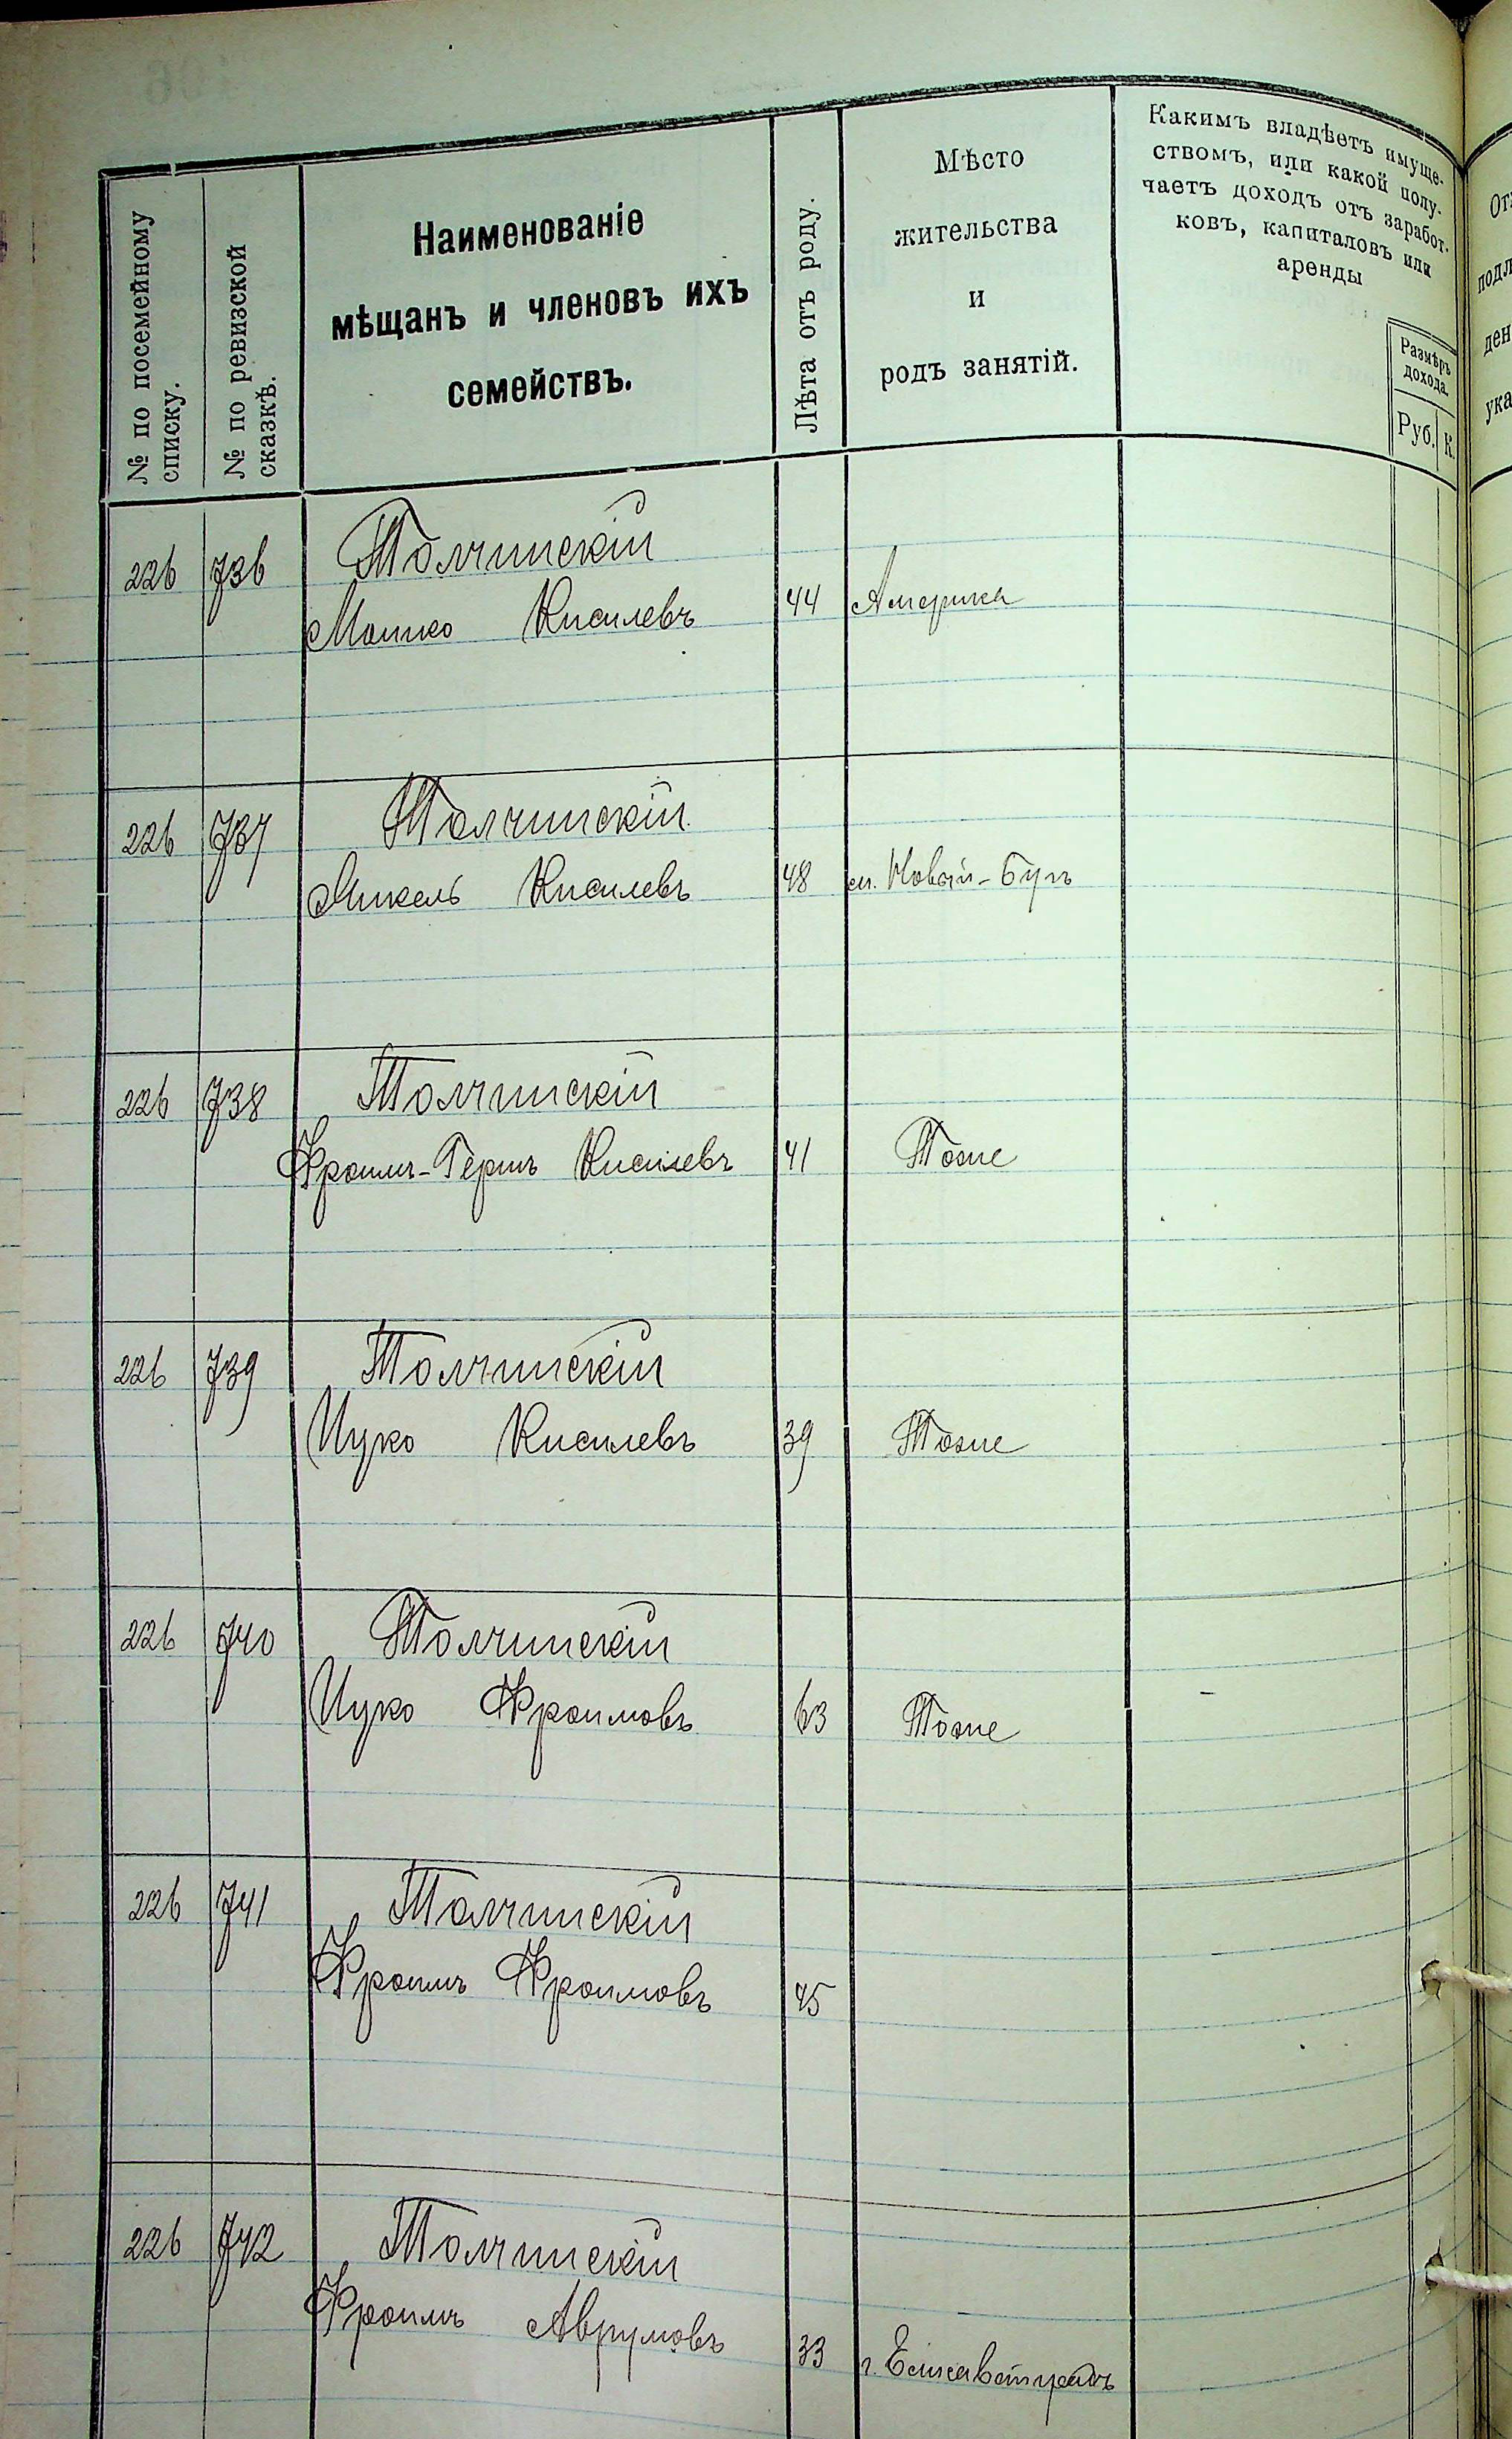 № по посемейному
списку.
№ по ревизской
сказкѣ.
Наименованіе
мѣщанъ и членовъ ихъ
семействъ.
Лѣта отъ роду.
Мѣсто
жительства
и
родъ занятій.
Какимъ владѣетъ имуще-
ствомъ, или какой полу-
чаетъ доходъ отъ заработ-
ковъ, капиталовъ или
аренды
Размѣръ
дохода.
Руб. К.
226 736 Толчинскій
Мошко Кисилевъ 44 Америка
226 737 Толчинскій
Микель Кисилевъ 48 м. Новый-Бугъ
226 738 Толчинскій
Фроимъ-Гершъ Кисилевъ 41 Тоже
226 739 Толчинскій
Ицко Кисилевъ 39 Тоже
226 740 Толчинскій
Ицко Фроимовъ 63 Тоже
226 741 Толчинскій
Фроимъ Фроимовъ 45
226 742 Толчинскій
Фроимъ Аврумовъ 33 г. Елисаветградъ